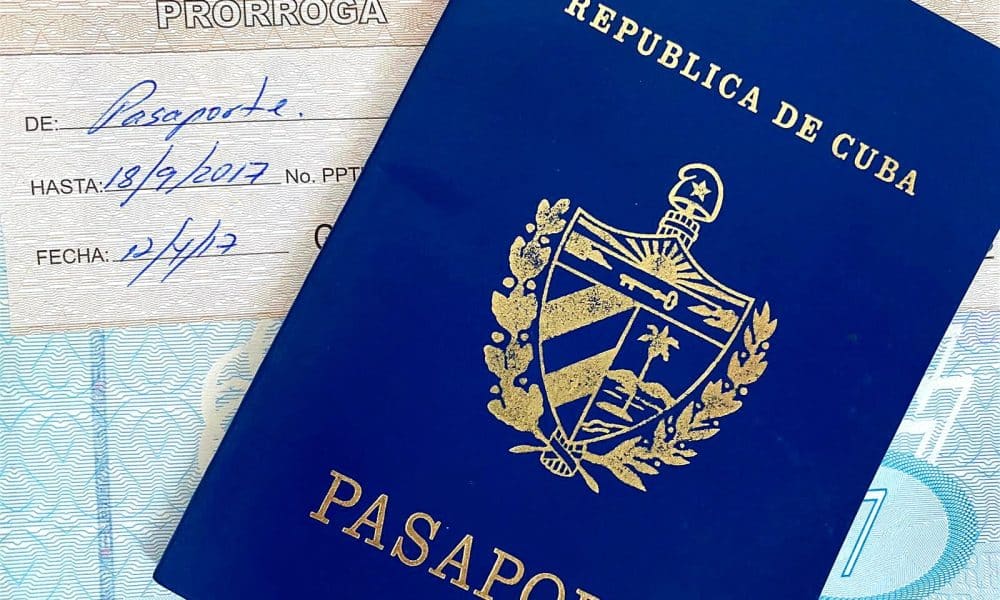 PRORROGA
DE: Pasaporte.
HASTA: 18/9/2017 No. PPT
FECHA: 12/4/17
REPUBLICA DE CUBA
PASAPO
7